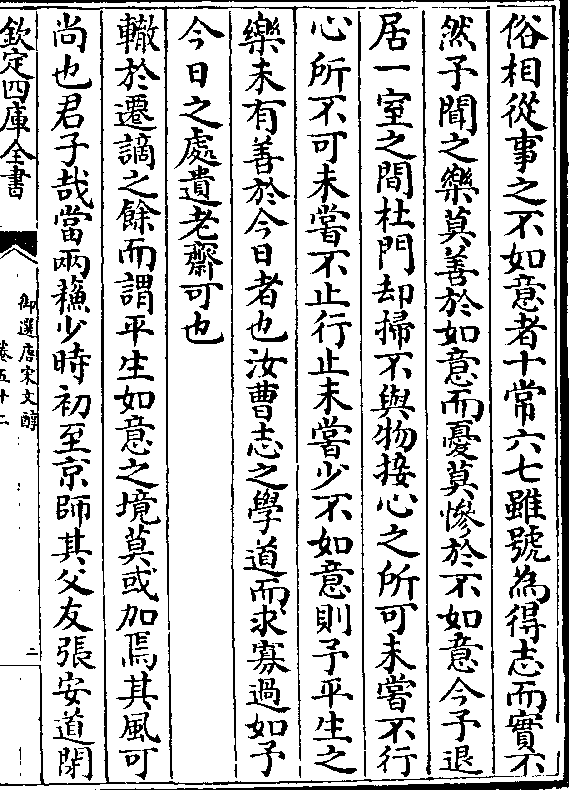 俗相從事之不如意者十常六七雖號為得志而實不
然予聞之樂莫善於如意而憂莫慘於不如意今予退
居一室之間杜門却掃不與物接心之所可未嘗不行
心所不可未嘗不止行止未嘗少不如意則予平生之
樂未有善於今日者也汝曹志之學道而求寡過如予
今日之處遺老齋可也
轍於遷謫之餘而謂平生如意之境莫或加焉其風可
尚也君子哉當兩蘇少時初至京師其父友張安道閉
欽定四庫全書
御選唐宋文醇
卷五十二
二